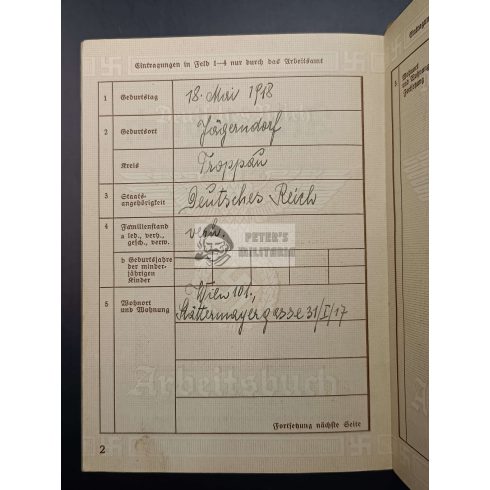 Eintragungen in Feld 1–4 nur durch das Arbeitsamt
1 Geburtstag 18. Mai 1918
2 Geburtsort Jägerndorf
Kreis Troppau
3 Staats-
angehörigkeit Deutsches Reich
4 Familienstand
a led., verh.,
gesch., verw. verh.
b Geburtsjahre
der minder-
jährigen
Kinder
PETER'S
MILITARIA
5 Wohnort
und Wohnung Wien 101.,
Stättermayergasse 31/I/17
Arbeitsbuch
Fortsetzung nächste Seite
2
5. Wohnort
und Wohnung
Fortsetzung